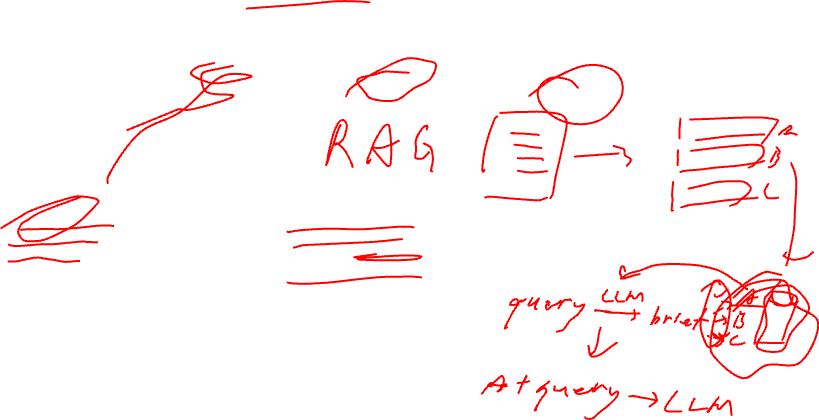 RAG
A
B
C
query LLM → brief → A
B
C
A + query → LLM